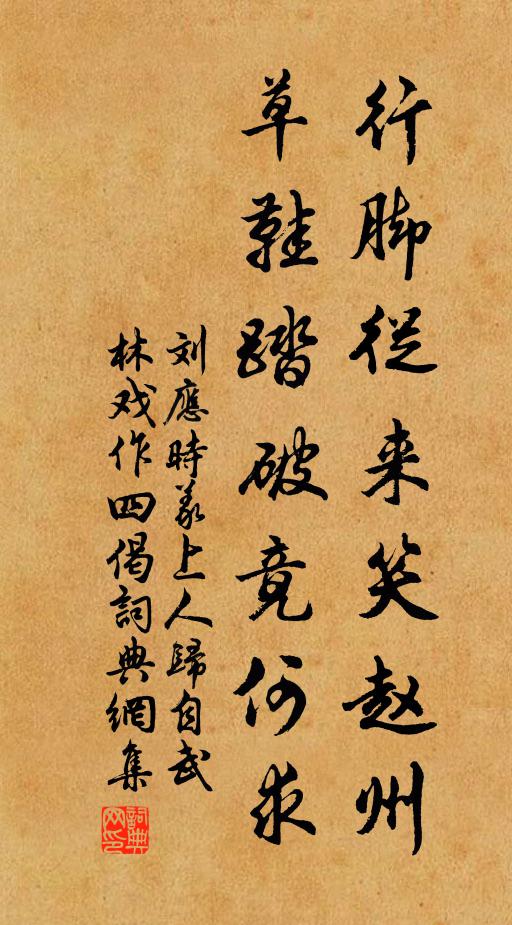 行脚從来笑赵州
草鞋踏破竟何求
刘應時義上人歸自武
林戏作四偈詞典網集
詞典网印